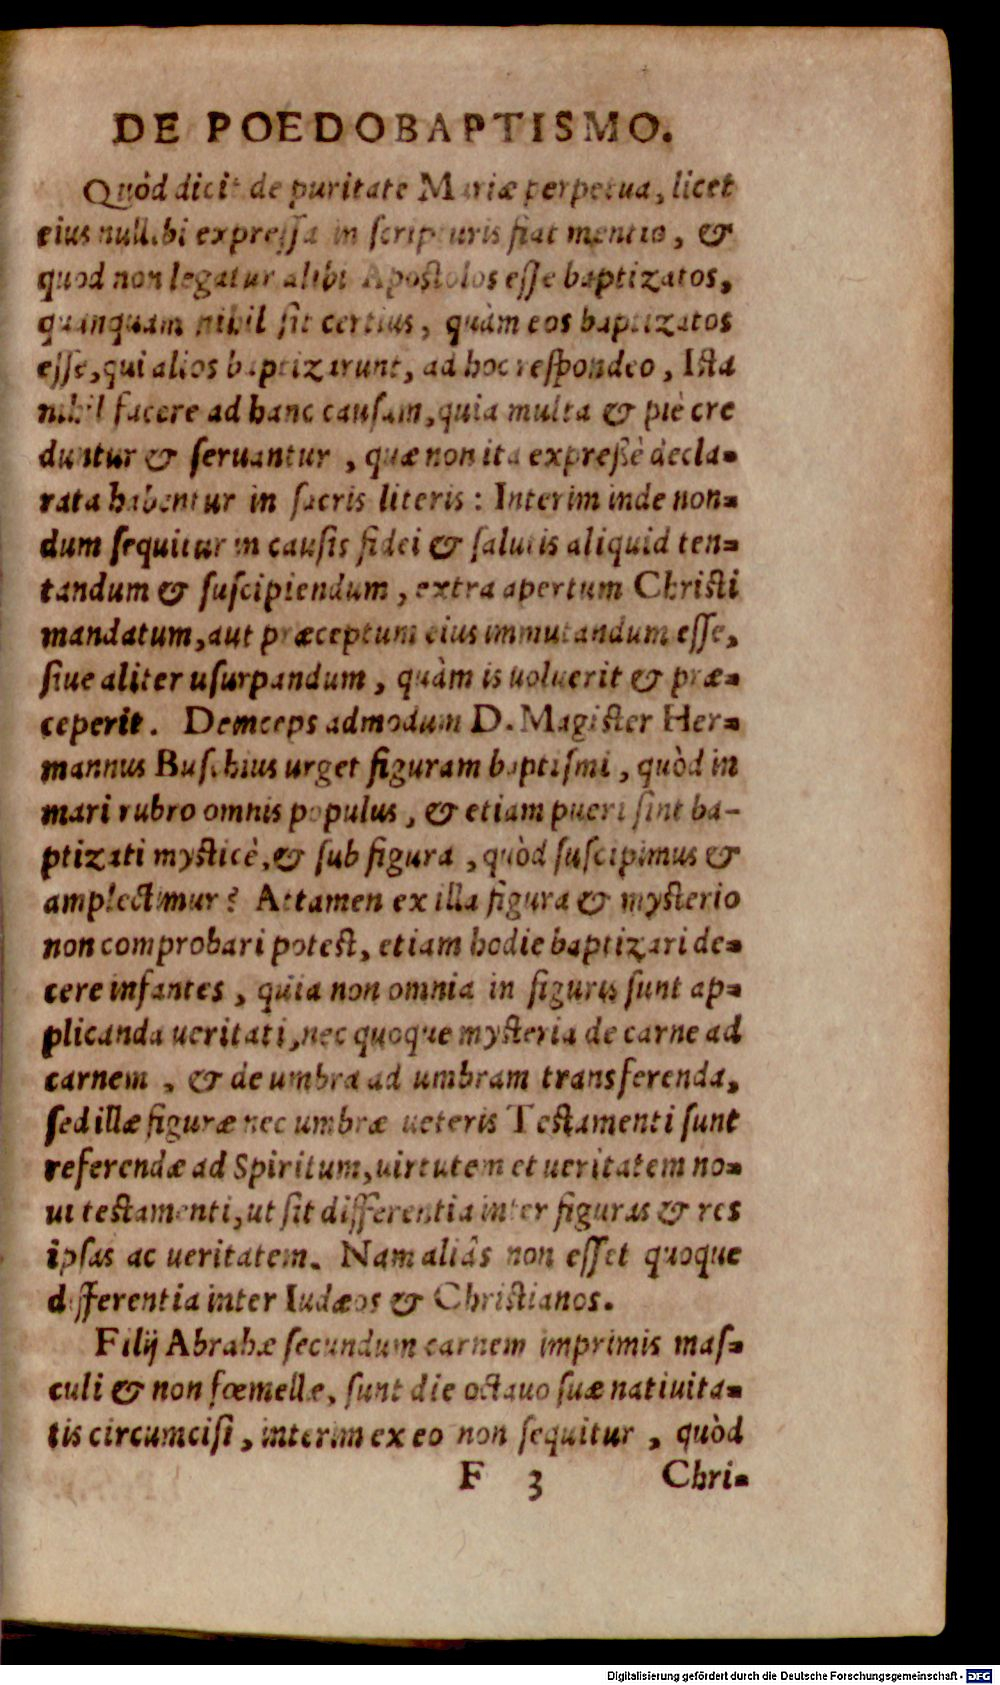 DE POEDOBAPTISMO.
Quòd dicit de puritate Mariæ perpetua, licet
eius nullibi expressa in scripturis fiat mentio, &
quod non legatur alibi Apostolos esse baptizatos,
quanquam nihil sit certius, quàm eos baptizatos
esse, qui alios baptizarunt, ad hoc respondeo, Ista
nihil facere ad hanc causam, quia multa & piè cre
duntur & seruantur, quæ non ita expreßè decla-
rata habentur in sacris literis: Interim inde non-
dum sequitur in causis fidei & salutis aliquid ten-
tandum & suscipiendum, extra apertum Christi
mandatum, aut præceptum eius immutandum esse,
siue aliter usurpandum, quàm is uoluerit & præ-
ceperit. Deinceps admodum D. Magister Her-
mannus Buschius urget figuram baptismi, quòd in
mari rubro omnis populus, & etiam pueri sint ba-
ptizati mysticè, & sub figura, quòd suscipimus &
amplectimur? Attamen ex illa figura & mysterio
non comprobari potest, etiam hodie baptizari de-
cere infantes, quia non omnia in figuris sunt ap-
plicanda ueritati, nec quoque mysteria de carne ad
carnem, & de umbra ad umbram transferenda,
sed illæ figuræ nec umbræ ueteris Testamenti sunt
referendæ ad Spiritum, uirtutem et ueritatem no-
ui testamenti, ut sit differentia inter figuras & res
ipsas ac ueritatem. Nam aliâs non esset quoque
differentia inter Iudæos & Christianos.
Filij Abrahæ secundum carnem imprimis mas-
culi & non fœmellæ, sunt die octauo suæ natiuita-
tis circumcisi, interim ex eo non sequitur, quòd
F 3 Chri-
Digitalisierung gefördert durch die Deutsche Forschungsgemeinschaft - DFG